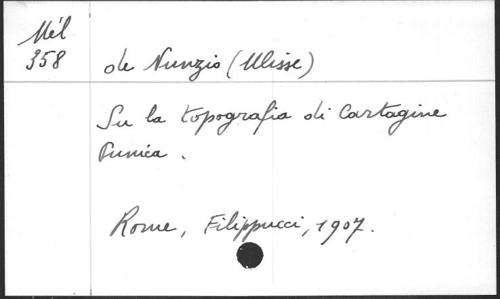 Mél
358
de Nunzio (Ulisse)
Su la topografia di Cartagine
Punica.
Rome, Filippucci, 1907.